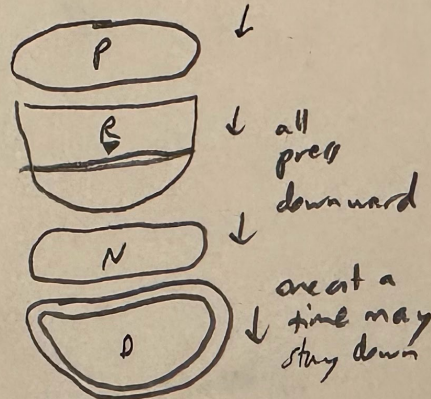 P
R
all
press
downward
N
one at a
time may
stay down
D